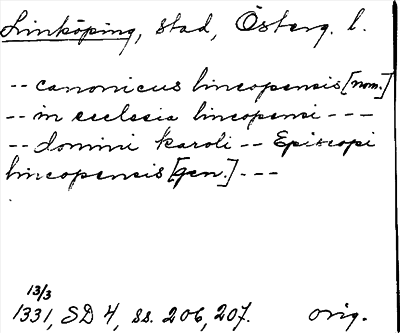 Linköping, stad, Österg. l.
-- canonicus lincopensis [nom.]
-- in ecclesia lincopensi ---
-- domini Karoli -- Episcopi
lincopensis [gen.] ---
13/3
1331, SD 4, ss. 206, 207. orig.